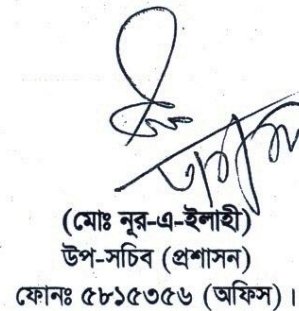 (মোঃ নূর-এ-ইলাহী)
উপ-সচিব (প্রশাসন)
ফোনঃ ৫৮১৫৩৫৬ (অফিস)।